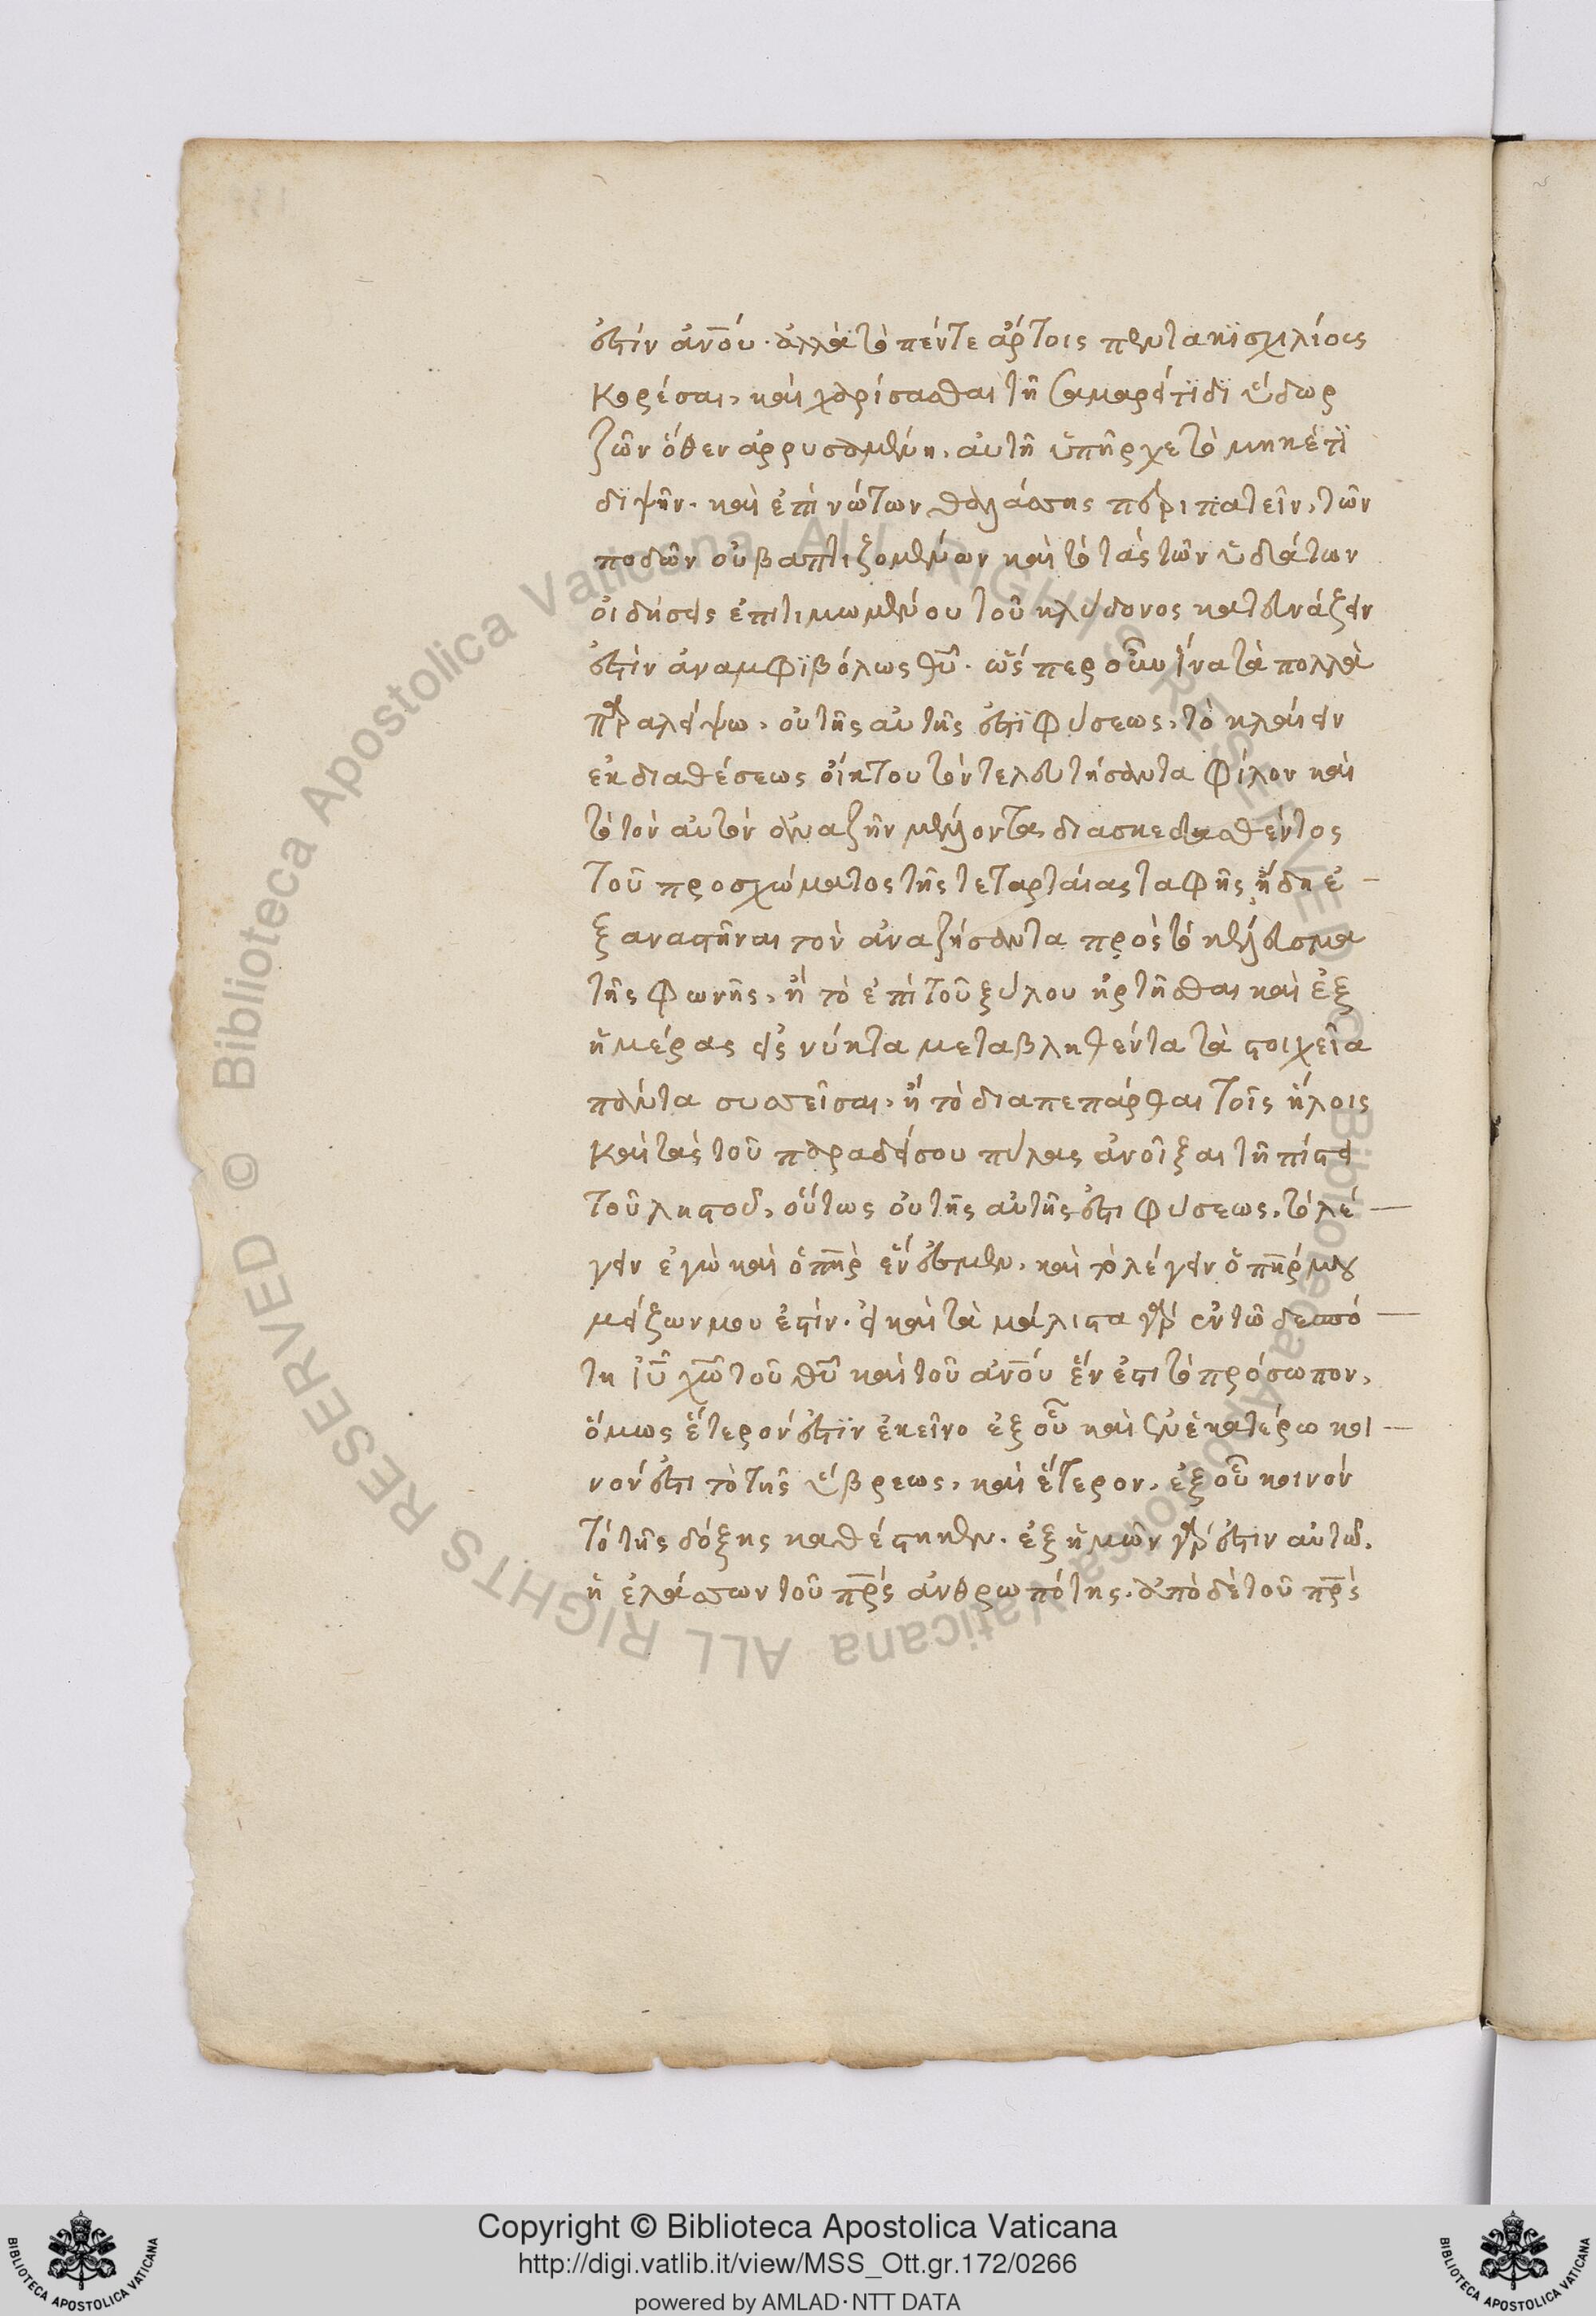 ἐστὶν ἀν̅ου· ἀλλὰ τὸ πέντε ἄρτοις πεντακϊσχιλίους
κορέσαι, καὶ χαρίσασθαι τῆ σαμαρείτϊδι ὕδωρ
ζῶν ὅθεν ἀρρυσαμένη, αὐτῆ ὑπῆρχε τὸ μηκέτϊ
διψῆν· καὶ ἐπὶ νώτων θαλάσσης περιπατεῖν, τῶν
ποδῶν οὐ βαπτιζομένων καὶ τὸ τὰς τῶν ὑδάτων
οἰδήσεις ἐπιτιμωμένου τοῦ κλύδονος κατευνάζειν
ἐστὶν ἀναμφϊβόλως θυ̅· ὥς περ οὖν ἵνα τὰ πολλὰ
παραλείψω, οὐ τῆς αὐτῆς ἐστϊ φύσεως, τὸ κλαίειν
ἐκ διαθέσεως οἴκτου τὸν τελευτήσαντα φίλον καὶ
τὸ τὸν αὐτὸν ἀναζῆν μέλλοντα, διασκεδασθέντος
τοῦ προσχώματος τῆς τεταρταίας ταφῆς ἤδη ἐ-
ξαναστῆναι τὸν ἀναζήσαντα πρὸς τὸ κέλευσμα
τῆς φωνῆς, ἢ τὸ ἐπὶ τοῦ ξύλου ἠρτῆσθαι καὶ ἐξ
ἡμέρας εἰς νύκτα μεταβληθέντα τὰ στοιχεῖα
πάντα συσσεῖσαι, ἢ τὸ διαπεπάρθαι τοῖς ἥλοις
καὶ τὰς τοῦ παραδείσου πύλας ἀνοῖξαι τῆ πίστει
τοῦ ληστοῦ, οὕτως οὐ τῆς αὐτῆς ἐστι φύσεως, τὸ λέ-
γειν ἐγὼ καὶ ὁ πη̅ρ ἕν ἐσμεν, καὶ τὸ λέγειν ὁ πη̅ρ μου
μείζων μου ἐστίν· εἰ καὶ τὰ μάλιστα γὰρ ἐν τῶ δεσπό-
τη ιυ̅ χω̅ τοῦ θυ̅ καὶ τοῦ ἀν̅ου ἕν ἐστι τὸ πρόσωπον,
ὅμως ἕτερόν ἐστϊν ἐκεῖνο ἐξ οὗ καὶ ἐν ἑκατέρω κοι-
νόν ἐστι τὸ τῆς ὕβρεως, καὶ ἕτερον, ἐξ οὗ κοινὸν
τὸ τῆς δόξης καθέστηκεν· ἐξ ἡμῶν γάρ ἐστιν αὐτῶ,
ἡ ἐλάσσων τοῦ πρ̅ς ἀνθρωπότης· ἀπὸ δὲ τοῦ πρ̅ς
Copyright © Biblioteca Apostolica Vaticana
http://digi.vatlib.it/view/MSS_Ott.gr.172/0266
powered by AMLAD·NTT DATA
BIBLIOTECA APOSTOLICA VATICANA
BIBLIOTECA APOSTOLICA VATICANA
© Biblioteca Apostolica Vaticana ALL RIGHTS RESERVED
© Biblioteca Apostolica Vaticana ALL RIGHTS RESERVED